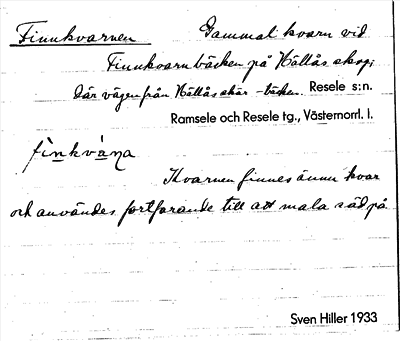 Finnkvarnen Gammal kvarn vid
Finnkvarnbäcken på Hällås skog;
där vägen från Hällås skär -bäcken. Resele s:n.
Ramsele och Resele tg., Västernorrl. l.
fìnkvàṇa
Kvarnen finnes ännu kvar
och användes fortfarande till att mala säd på.
Sven Hiller 1933